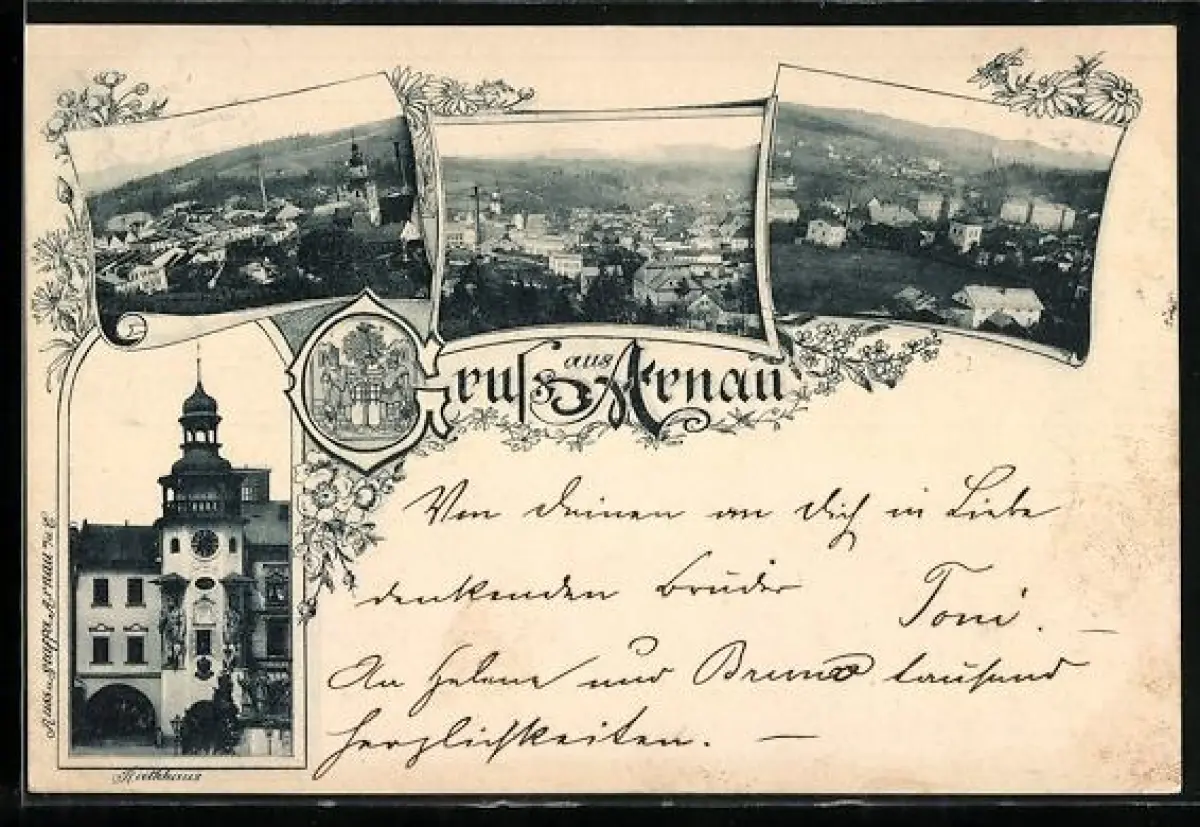 Gruss aus Arnau
Von deinen an dich in Liebe
denkenden Bruder Toni. —
An Helene und Bruno tausend
Herzlichkeiten. —
Rathhaus